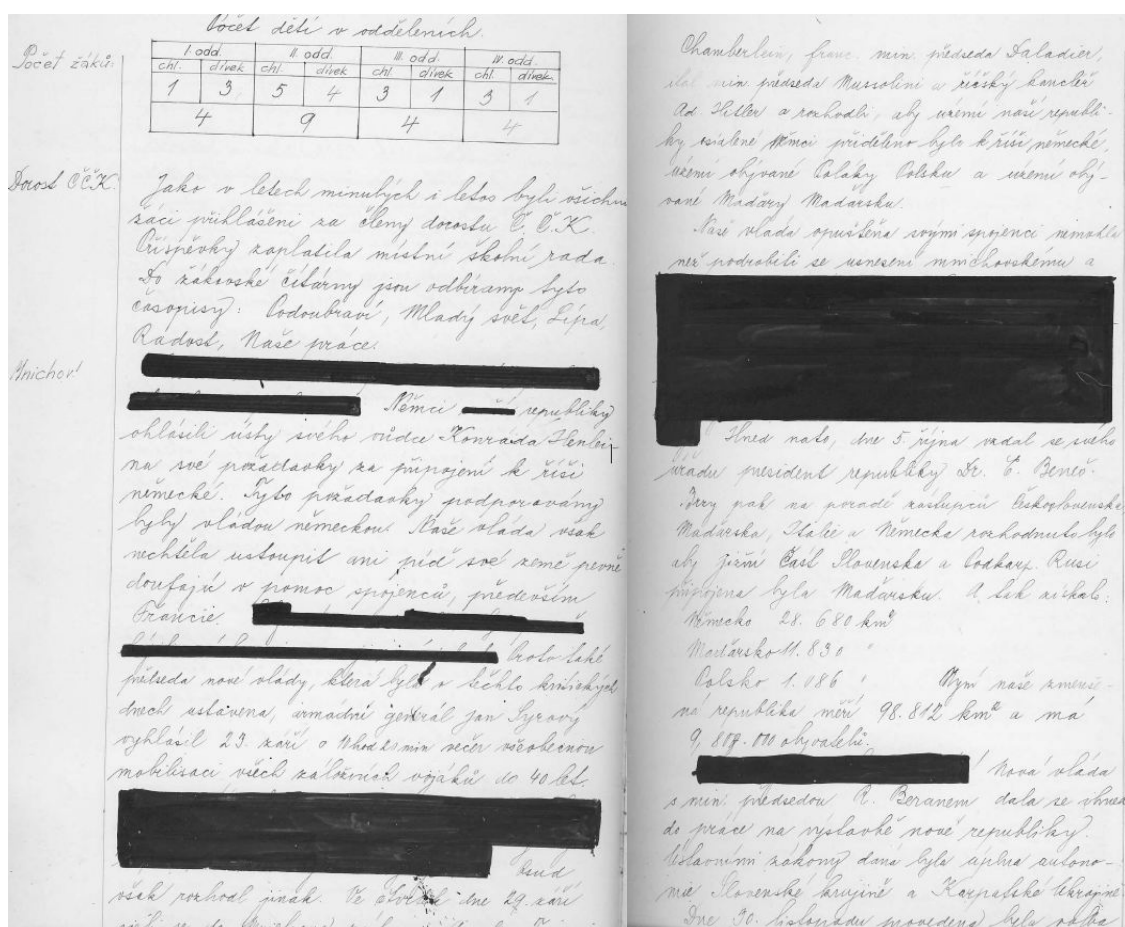 Počet dětí v odděleních.
Počet žáků:
I. odd. II. odd. III. odd. IV. odd.
chl. dívek chl. dívek chl. dívek chl. dívek
1 3 5 4 3 1 3 1
4 9 4 4
Dorost ČČK.
Jako v letech minulých i letos byli všichni
žáci přihlášeni za členy dorostu Č. Č. K.
Příspěvky zaplatila místní školní rada.
Do žákovské čítárny jsou odbírany tyto
časopisy: Podoubraví, Mladý svět, Lípa,
Radost, Naše práce.
Mnichov!
Němci republiky
ohlásili ústy svého vůdce Konráda Henlei-
na své požadavky za připojení k říši
německé. Tyto požadavky podporovány
byly vládou německou. Naše vláda však
nechtěla ustoupit ani píď své země pevně
doufajíc v pomoc spojenců, především
Francie.
Proto také
předseda nové vlády, která byla v těchto kritických
dnech ustavena, armádní generál Jan Syrový
vyhlásil 23. září o večer všeobecnou
mobilisaci všech záložních vojáků do 40 let.
Osud
však rozhodl jinak. Ve čtvrtek dne 29. září
Chamberlein, franc. min. předseda Daladier,
ital. min. předseda Mussolini a říšský kancléř
Ad. Hitler a rozhodli, aby území naší republi-
ky osídlené Němci přiděleno bylo k říši německé,
území obývané Poláky Polsku a území obý-
vané Maďary Maďarsku.
Naše vláda opuštěna svými spojenci nemohla
než podrobiti se usnesení mnichovskému a
Hned nato, dne 5. října vzdal se svého
úřadu president republiky Dr. E. Beneš.
Brzy pak na poradě zástupců Československa
Maďarska, Italie a Německa rozhodnuto bylo
aby jižní část Slovenska a Podkarp. Rusi
připojena byla Maďarsku. A tak získalo:
Německo 28.680 km²
Maďarsko 11.830 "
Polsko 1.086 " Nyní naše zmenše-
ná republika měří 98.812 km² a má
obyvatelů.
Nová vláda
s min. předsedou R. Beranem dala se ihned
do práce na výstavbě nové republiky.
Ústavními zákony daná byla úplna autono-
mie Slovenské krajině a Karpatské Ukrajině.
Dne 30. listopadu provedena byla volba